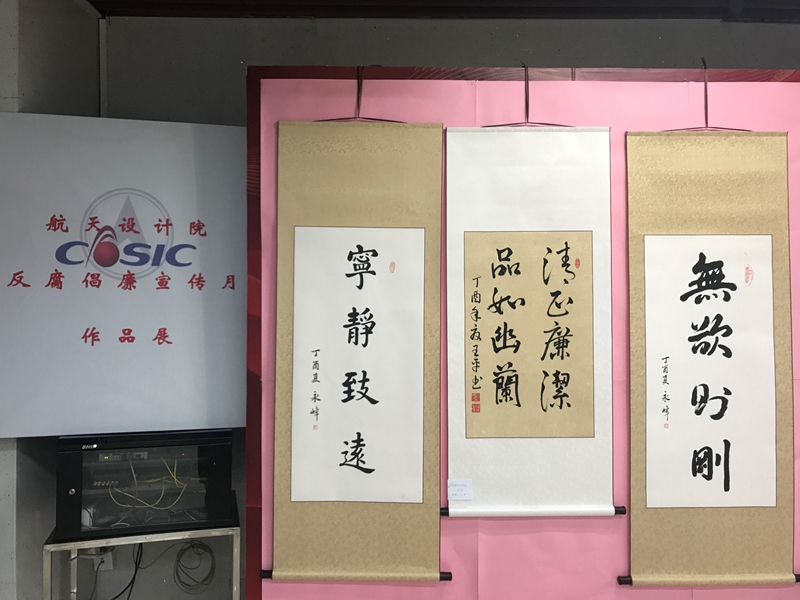 航天设计院
CASIC
反腐倡廉宣传月
作品展
寧靜致遠
丁酉夏 永峰
清正廉潔
品如幽蘭
丁酉年夏王平书
無欲則剛
丁酉夏 永峰